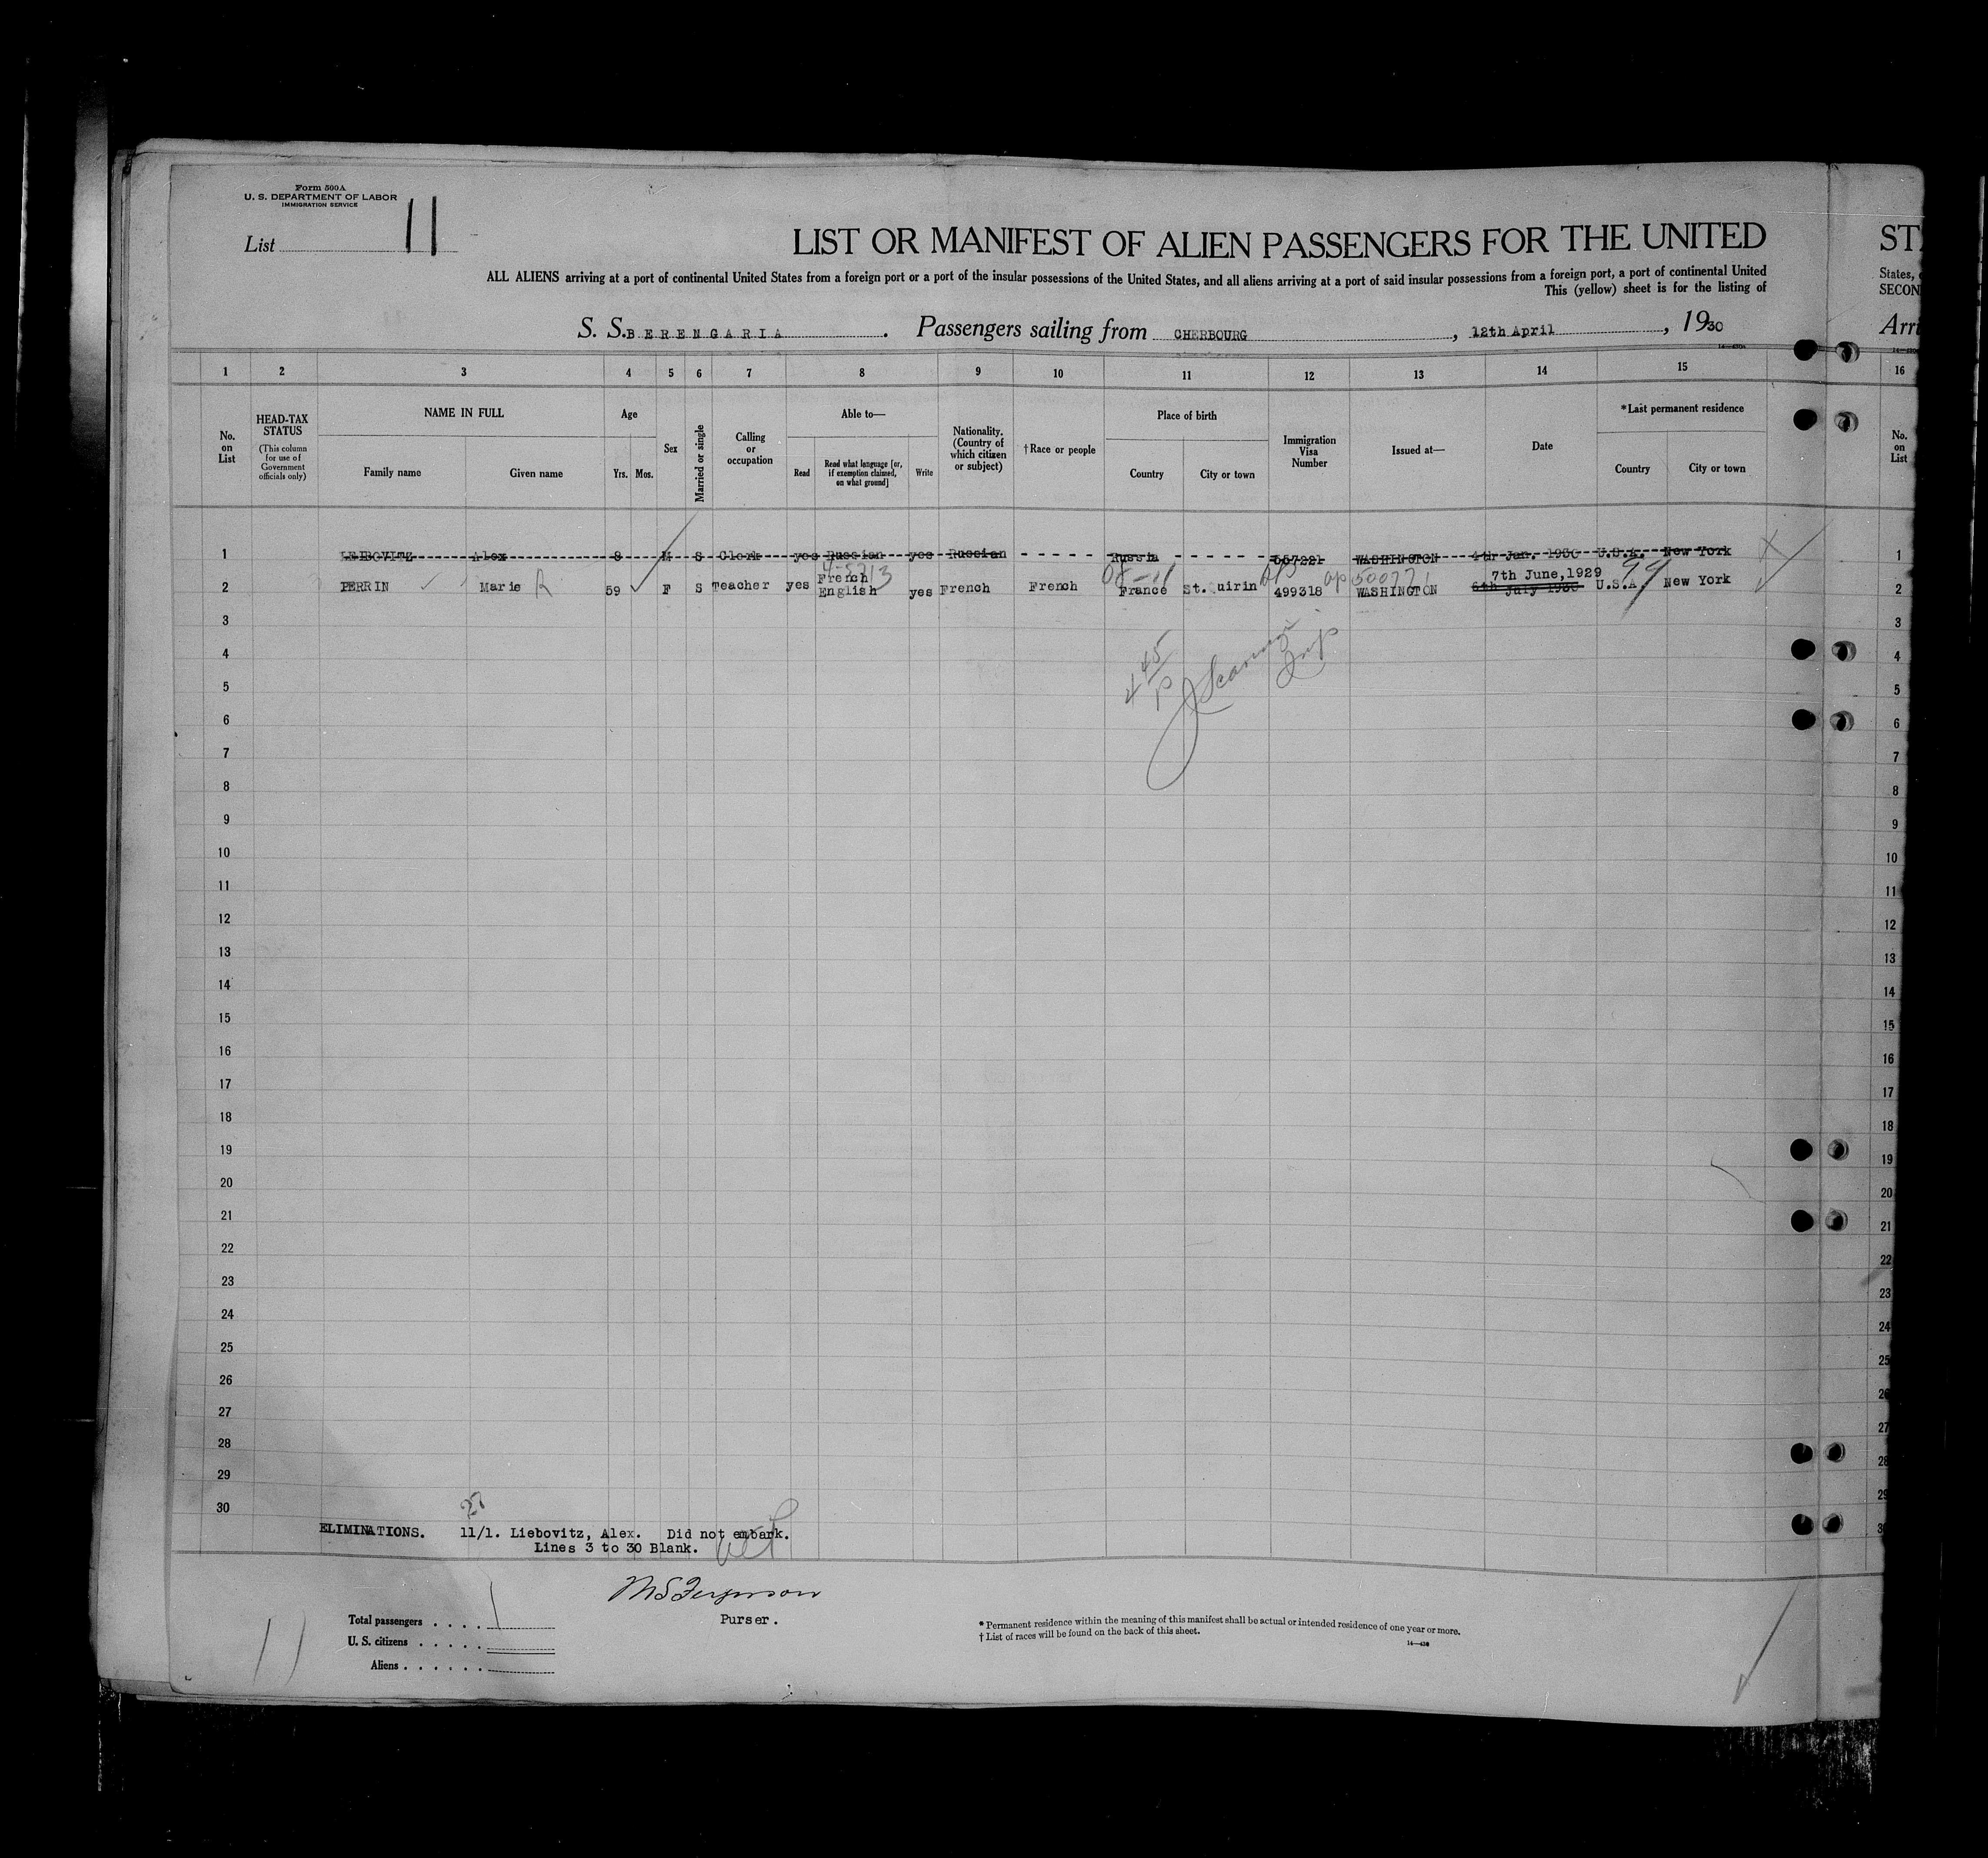 Form 500A
U. S. DEPARTMENT OF LABOR
IMMIGRATION SERVICE
List 11
LIST OR MANIFEST OF ALIEN PASSENGERS FOR THE UNITED
ALL ALIENS arriving at a port of continental United States from a foreign port or a port of the insular possessions of the United States, and all aliens arriving at a port of said insular possessions from a foreign port, a port of continental United
This (yellow) sheet is for the listing of
S. S. BERENGARIA. Passengers sailing from CHERBOURG, 12th April, 1930
States,
SECON
1 2 3 4 5 6 7 8 9 10 11 12 13 14 15 16
No. on List
HEAD-TAX STATUS
(This column for use of Government officials only)
NAME IN FULL
Family name Given name
Age
Yrs. Mos.
Sex
Married or single
Calling or occupation
Able to—
Read
Read what language [or, if exemption claimed, on what ground]
Write
Nationality. (Country of which citizen or subject)
†Race or people
Place of birth
Country City or town
Immigration Visa Number
Issued at—
Date
*Last permanent residence
Country City or town
No. on List
1 LEIBOVITZ Alex M S Clerk yes Russian yes Russian Russia 557221 WASHINGTON 4th Jan. 1930 U.S.A. New York 1
2 PERRIN Marie R 59 F S Teacher yes French English yes French French France St.Quirin 499318 WASHINGTON 7th June,1929 6th July 1930 U.S.A New York 2
3 3
4 4
5 5
6 6
7 7
8 8
9 9
10 10
11 11
12 12
13 13
14 14
15 15
16 16
17 17
18 18
19 19
20 20
21 21
22 22
23 23
24 24
25 25
26 26
27 27
28 28
29 29
30
ELIMINATIONS. 11/1. Liebovitz, Alex. Did not embark.
Lines 3 to 30 Blank.
Purser.
Total passengers . . . . 1
U. S. citizens . . . . .
Aliens . . . . . .
11
* Permanent residence within the meaning of this manifest shall be actual or intended residence of one year or more.
† List of races will be found on the back of this sheet.